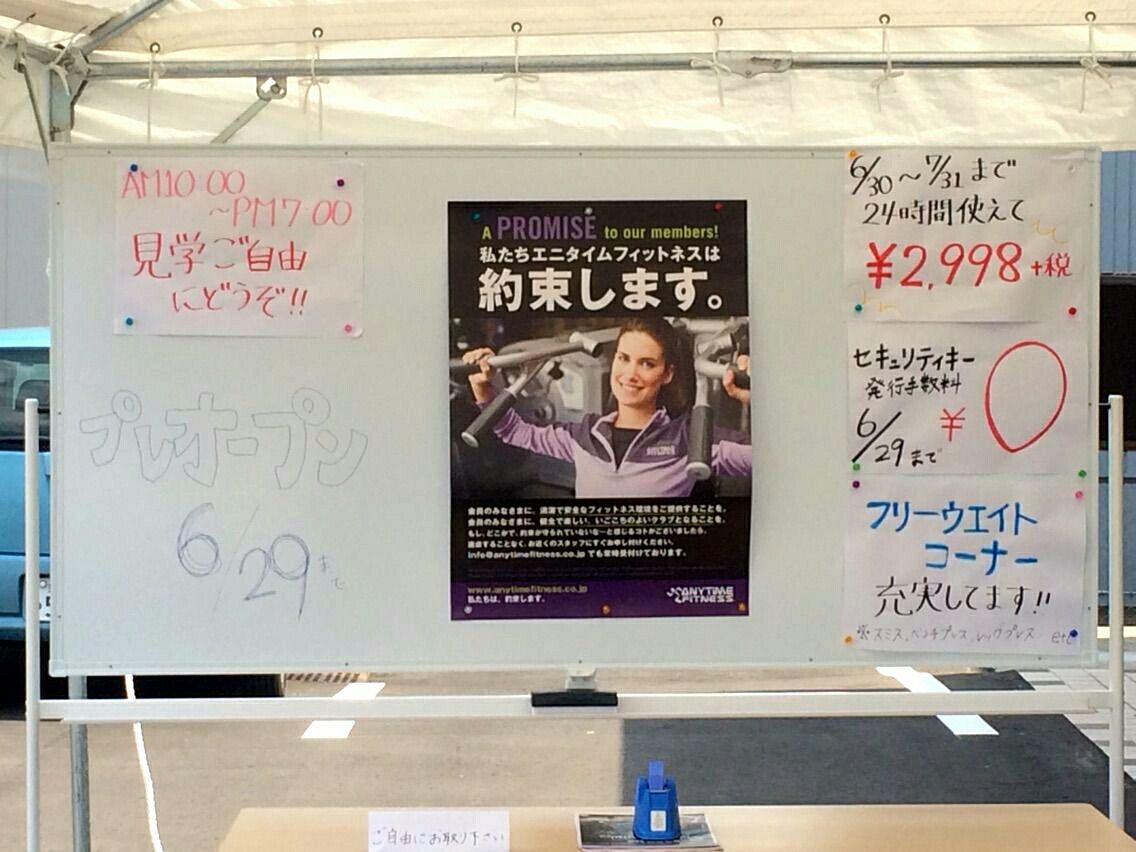 AM10:00
～PM7:00
見学ご自由
にどうぞ!!
プレオープン
6/29まで
A PROMISE to our members!
私たちエニタイムフィットネスは
約束します。
会員のみなさまに、清潔で安全なフィットネス環境をご提供することを。
会員のみなさまに、健全で楽しい、いごこちのよいクラブとなることを。
もし、どこかで、約束が守られていないな…と感じるコトがございましたら、
遠慮することなく、お近くのスタッフにすぐお申し付けください。
info@anytimefitness.co.jp でも常時受付けております。
www.anytimefitness.co.jp
私たちは、約束します。
ANYTIME
FITNESS
6/30～7/31まで
24時間使えて
¥2,998+税
セキュリティキー
発行手数料
6/29まで ¥0
フリーウエイト
コーナー
充実してます!!
※スミス、ベンチプレス、レッグプレス… etc
ご自由にお取り下さい